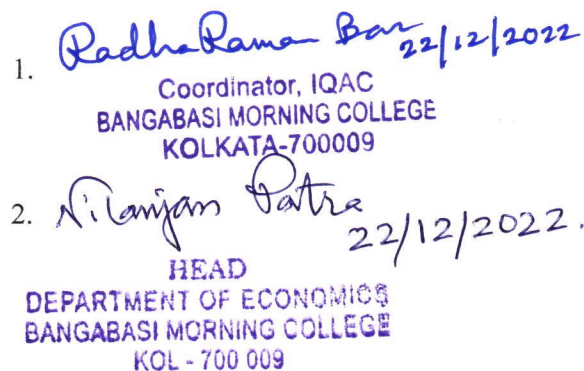 1. Radha Raman Bar 22/12/2022
Coordinator, IQAC
BANGABASI MORNING COLLEGE
KOLKATA-700009
2. Nilanjan Patra
22/12/2022.
HEAD
DEPARTMENT OF ECONOMICS
BANGABASI MORNING COLLEGE
KOL - 700 009